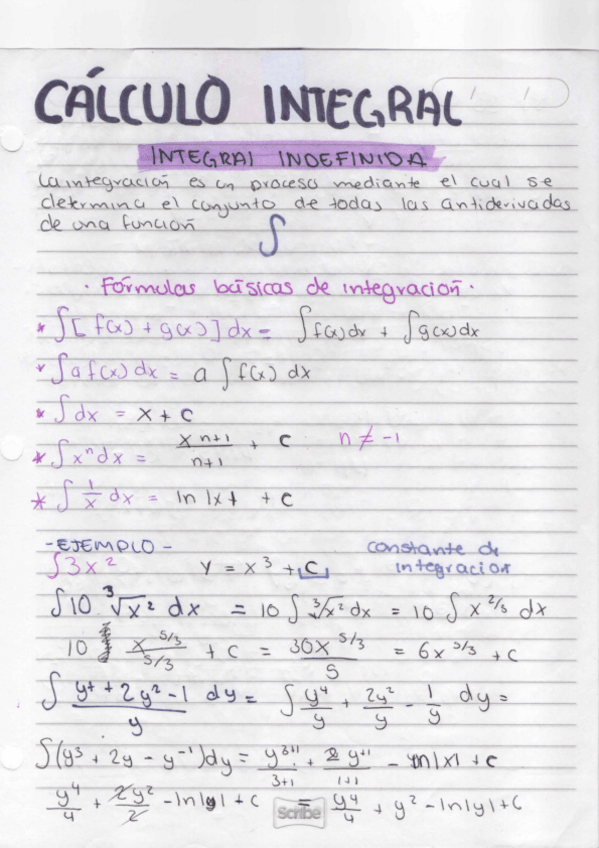 CÁLCULO INTEGRAL
INTEGRAL INDEFINIDA
La integración es un proceso mediante el cual se
determina el conjunto de todas las antiderivadas
de una función
∫
· Fórmulas básicas de integración ·
* ∫[f(x) + g(x)] dx = ∫f(x)dx + ∫g(x)dx
* ∫a f(x) dx = a ∫f(x) dx
* ∫dx = x + c
* ∫xⁿdx = x n+1 / n+1 + c n ≠ -1
* ∫ 1/x dx = ln |x| + c
- EJEMPLO - constante de
∫3x² y = x³ + c integracion
∫10 ³√x² dx = 10 ∫ ³√x² dx = 10 ∫ x^2/3 dx
10 x^5/3 / 5/3 + c = 30x^5/3 / 5 = 6x^5/3 + c
∫ y⁴ + 2y² - 1 / y dy = ∫ y⁴/y + 2y²/y - 1/y dy =
∫(y³ + 2y - y⁻¹)dy = y^3+1 / 3+1 + 2 y^1+1 / 1+1 - ln|x| + c
y⁴/4 + 2y²/2 - ln|y| + c = y⁴/4 + y² - ln|y| + c
Scribe